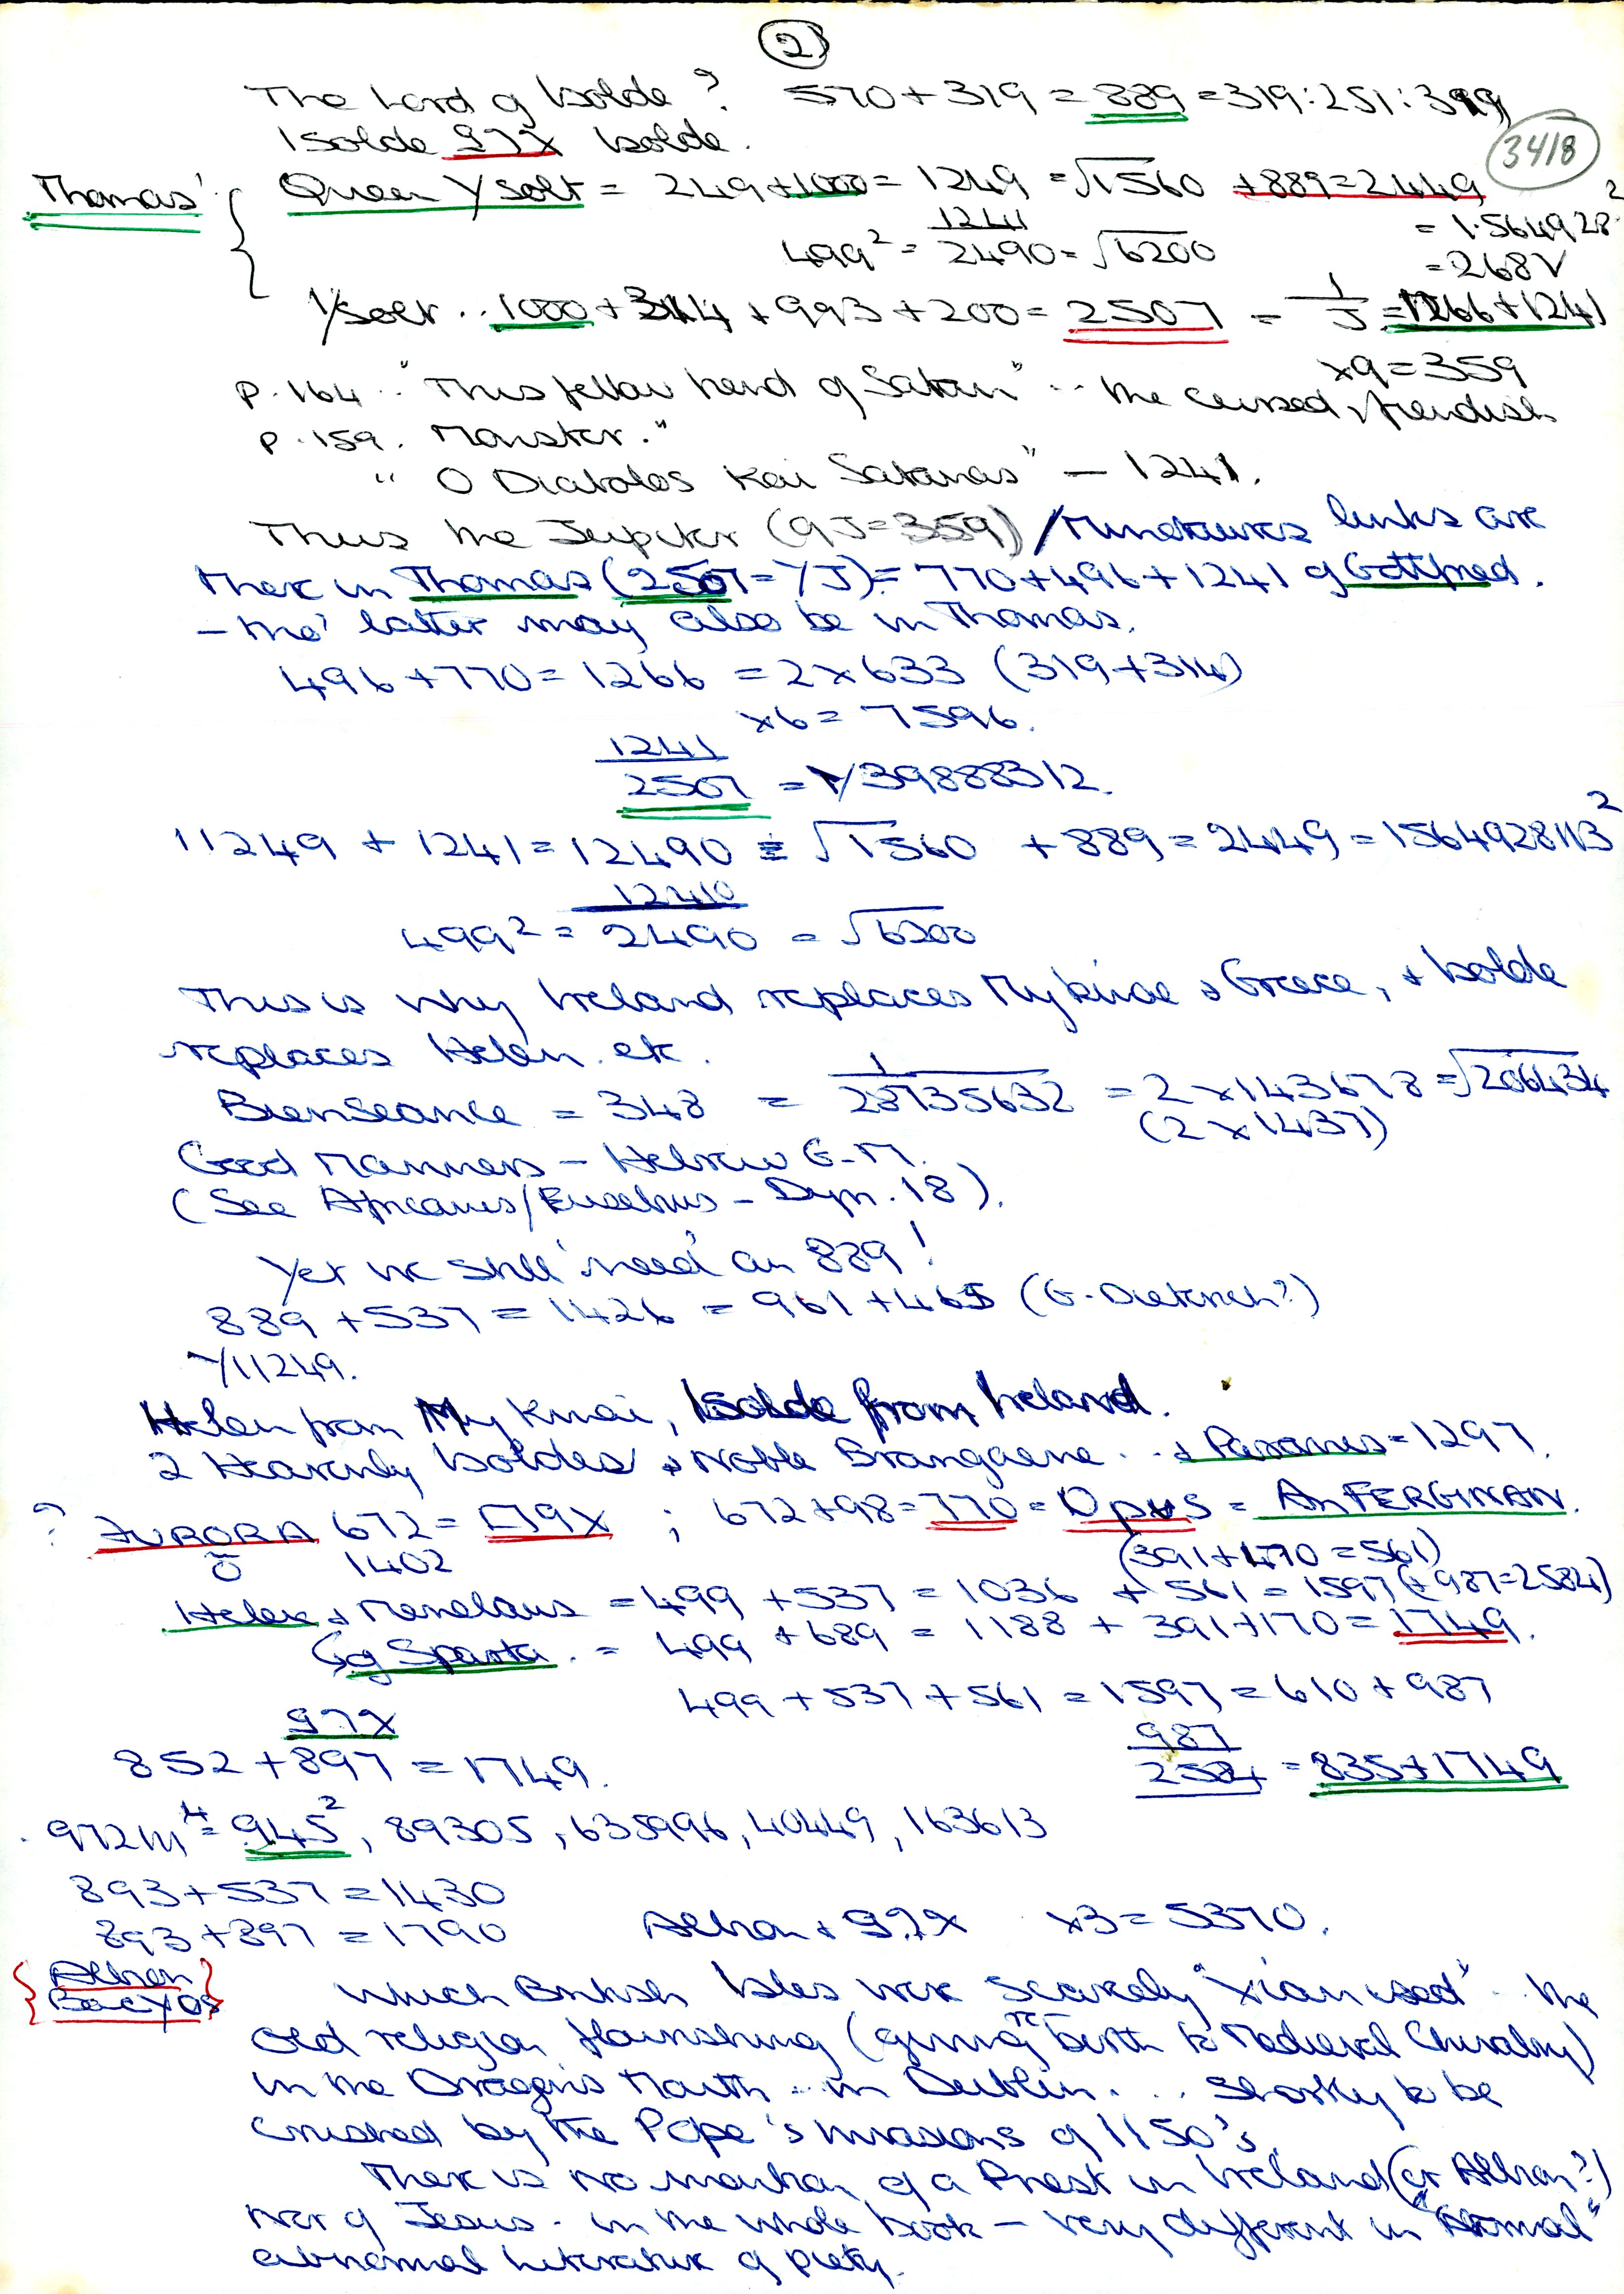 2
The Lord of Isolde? 570 + 319 = 889 = 319:251:319
3418
Isolde 97X Isolde.
Thomas' { Queen Ysolt = 249+1000 = 1249 = √1560 +889=2449
1241 = 1.564928²
499² = 2490 = √6200 = 268√
Ysolt .. 1000 + 314 + 993 + 200 = 2507 = 1/J = 1266+1241
x9 = 359
p.164 .. "This fellow hend of Satan" .. the cursed, fiendish
p.159. Monster."
" O Diabolos Kai Satanas" — 1241.
Thus the Jupiter (9J=359) / Minotaurs links are
there in Thomas (2507 = 1/J) = 770+496+1241 of Gottfried.
- tho' latter may also be in Thomas.
496+770 = 1266 = 2x633 (319+314)
x6 = 7596.
1241
2507 = 1/39888312.
11249 + 1241 = 12490 = √1560 + 889 = 2449 = 1564928113²
12410
499² = 2490 = √6200
This is why Ireland replaces Mykinae & Greece, + Isolde
replaces Helen. etc.
Bienseance = 348 = 1/28735632 = 2x143678 = √206434
(2x1437)
Good Manners - Hebrew G-M.
(See Africanus/Eusebius - Dyn. 18).
Yet we still 'need' an 889!
889 + 537 = 1426 = 961 + 465 (G. Dietrich?)
1/11249.
Helen from Myknai, Isolde from Ireland.
2 Heavenly Isoldes & Noble Brangaene .. & Paranis = 1297.
? JURORA 672 = 79X ; 672+98 = 770 = Opus = AnFERGINAN.
ō 1402 (391+170=561)
Helen & Menelaus = 499 + 537 = 1036 + 561 = 1597 (+987=2584)
of Sparta. = 499 + 689 = 1188 + 391+170 = 1749.
499 + 537 + 561 = 1597 = 610 + 987
97X
987
852 + 897 = 1749.
2584 = 835+1749
972m⁴ = 945², 89305, 635996, 40449, 163613
893+537 = 1430
893+897 = 1790 Albion + 97X x3 = 5370.
{Albion}
{Bacyos}
Which British Isles were scarcely "Xianised" .. the
old religion flourishing (giving re-birth to Medieval Chivalry)
in the Dragon's Mouth .. in Dublin . . . shortly to be
crushed by the Pope's invasions of 1150's.
There is no mention of a Priest in Ireland (or Albion?)
nor of Jesus - in the whole book - very different in "Normal"
abnormal literature of piety.